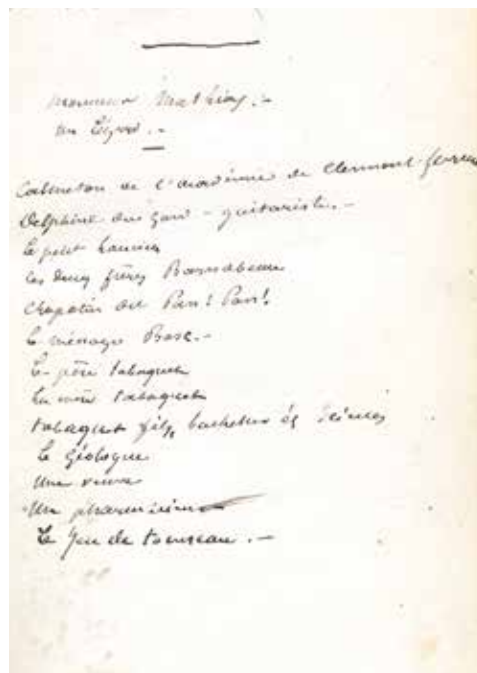 Monsieur Mathieu. -
un Lézard. -
Cabneton de l'académie de Clermont ferrand
Delphine du Gard - guitariste. -
le petit
les deux frères Barnabeau
Chapatin dit Pan! Pan!
le ménage Bosc. -
le père tabaquet
La mère tabaquet
tabaquet fils, bachelier ès sciences
le géologue
Une veuve
Un pharmacien
Le jeu de tonneau. -